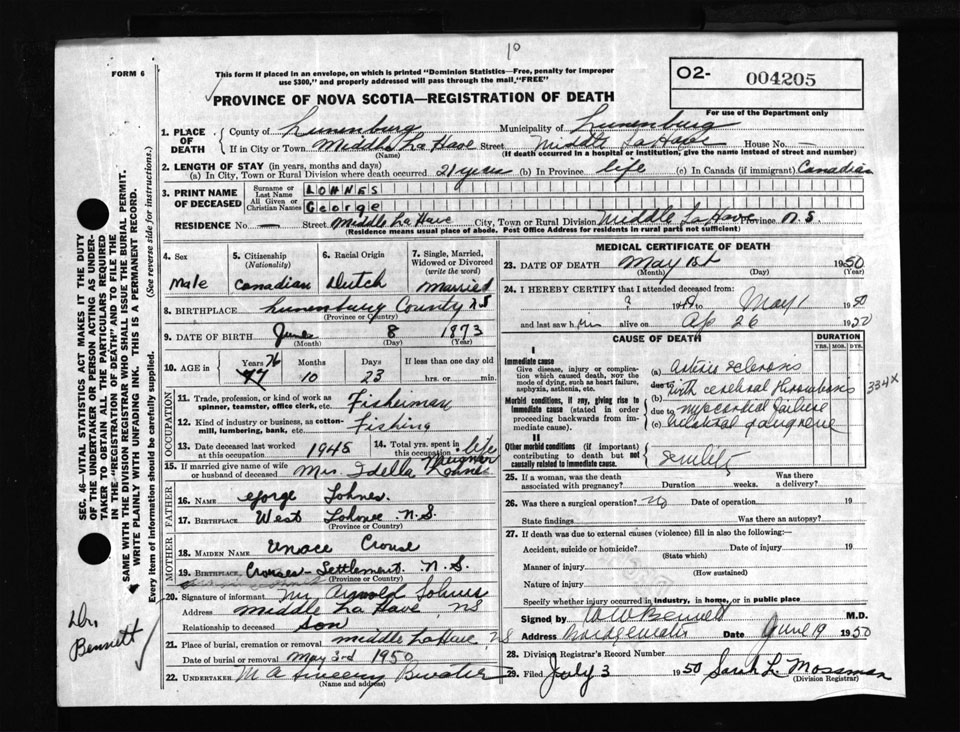 10
FORM 6
This form if placed in an envelope, on which is printed "Dominion Statistics—Free, penalty for improper
use $300," and properly addressed will pass through the mail "FREE"
O2- 004205
For use of the Department only
PROVINCE OF NOVA SCOTIA—REGISTRATION OF DEATH
1. PLACE OF DEATH County of Lunenburg Municipality of Lunenburg
If in City or Town Middle La Have Street Middle La Have House No. —
(Name) (If death occurred in a hospital or institution, give the name instead of street and number)
2. LENGTH OF STAY (in years, months and days)
(a) In City, Town or Rural Division where death occurred 21 years (b) In Province life (c) In Canada (if immigrant) Canadian
3. PRINT NAME OF DECEASED Surname or Last Name LOHNES
All Given or Christian Names George
RESIDENCE No. — Street Middle La Have City, Town or Rural Division Middle La Have Province N.S.
(Residence means usual place of abode. Post Office Address for residents in rural parts not sufficient)
4. Sex Male
5. Citizenship (Nationality) Canadian
6. Racial Origin Dutch
7. Single, Married, Widowed or Divorced (write the word) Married
8. BIRTHPLACE Lunenburg County N S
(Province or Country)
9. DATE OF BIRTH June 8 1873
(Month) (Day) (Year)
10. AGE in Years 77 76 Months 10 Days 23 If less than one day old hrs. or min.
OCCUPATION
11. Trade, profession, or kind of work as spinner, teamster, office clerk, etc. Fisherman
12. Kind of industry or business, as cotton-mill, lumbering, bank, etc. Fishing
13. Date deceased last worked at this occupation 1945
14. Total yrs. spent in this occupation life
15. If married give name of wife or husband of deceased Mrs. Idella Lohnes
FATHER
16. NAME George Lohnes.
17. BIRTHPLACE West N.S.
(Province or Country)
MOTHER
18. MAIDEN NAME Crouse
19. BIRTHPLACE Crouses Settlement N.S.
(Province or Country)
20. Signature of informant Mr Arnold Lohnes
Address Middle La Have NS
Relationship to deceased Son
21. Place of burial, cremation or removal Middle LaHave NS
Date of burial or removal May 3rd 1950
22. UNDERTAKER M A Sweeny
(Name and address)
MEDICAL CERTIFICATE OF DEATH
23. DATE OF DEATH May 1st 1950
(Month) (Day) (Year)
24. I HEREBY CERTIFY that I attended deceased from:
? 19 to May 1 1950
and last saw him alive on Ap 26 1950
CAUSE OF DEATH
DURATION
YRS. MOS. DYS.
I
Immediate cause
Give disease, injury or complication which caused death, NOT the mode of dying, such as heart failure, asphyxia, asthenia, etc.
(a) arterio sclerosis
due to with cerebral thrombosis
334X
Morbid conditions, if any, giving rise to immediate cause (stated in order proceeding backwards from immediate cause).
(b)
due to myocardial failure
(c) bilateral gangrene
II
Other morbid conditions (if important) contributing to death but not causally related to immediate cause.
Senility
25. If a woman, was the death associated with pregnancy? Duration weeks. Was there a delivery?
26. Was there a surgical operation? No Date of operation 19
State findings Was there an autopsy?
27. If death was due to external causes (violence) fill in also the following:
Accident, suicide or homicide? Date of injury 19
(State which)
Manner of injury
(How sustained)
Nature of injury
Specify whether injury occurred in industry, in home, or in public place
Signed by W W Bennett M.D.
Address Bridgewater Date June 19 1950
28. Division Registrar's Record Number
29. Filed July 3 1950 Sarah L. Mossman
(Division Registrar)
SEC. 46—VITAL STATISTICS ACT MAKES IT THE DUTY
OF THE UNDERTAKER OR PERSON ACTING AS UNDER-
TAKER TO OBTAIN ALL THE PARTICULARS REQUIRED
IN THE "REGISTRATION OF DEATH" AND TO FILE THE
SAME WITH THE DIVISION REGISTRAR WHO SHALL ISSUE THE BURIAL PERMIT.
WRITE PLAINLY WITH UNFADING INK. THIS IS A PERMANENT RECORD.
Every item of information should be carefully supplied. (See reverse side for instructions.)
Dr. Bennett